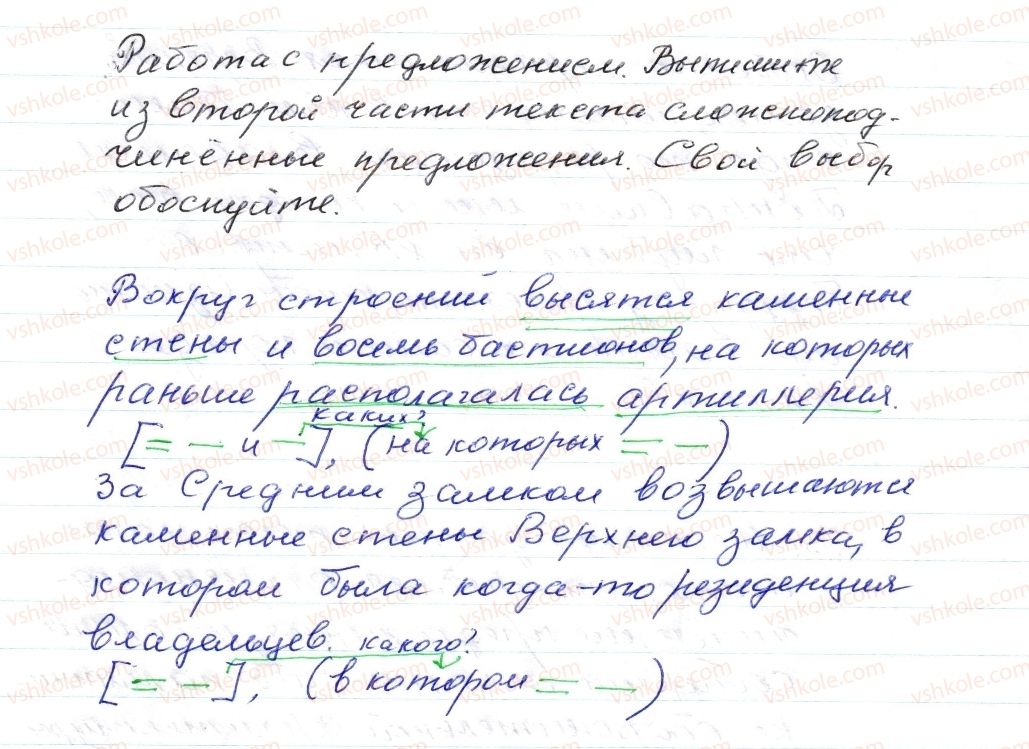 Работа с предложением. Выпишите
из второй части текста сложнопод-
чинённые предложения. Свой выбор
обоснуйте.
Вокруг строений высятся каменные
стены и восемь бастионов, на которых
раньше располагалась артиллерия.
каких?
[= — и —], (на которых = —)
За Средним замком возвышаются
каменные стены Верхнего замка, в
котором была когда-то резиденция
владельцев. какого?
[= —], (в котором = —)
vshkole.com